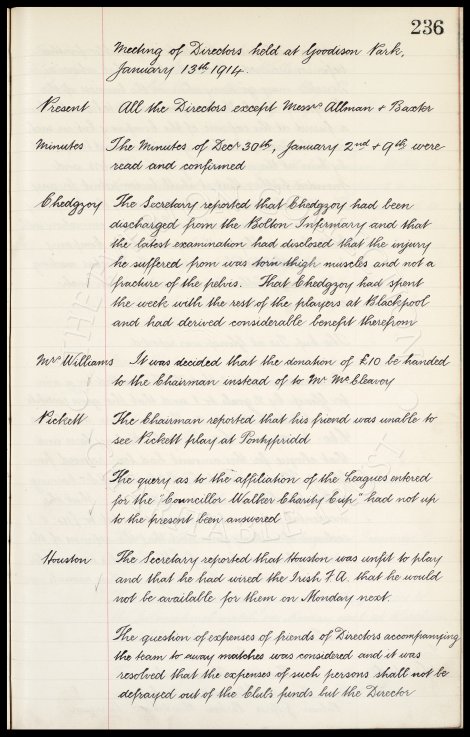 236
Meeting of Directors held at Goodison Park,
January 13th 1914.
Present All the Directors except Messrs Allman + Baxter
Minutes The Minutes of Decr 30th, January 2nd + 9th were
read and confirmed
Chedgzoy The Secretary reported that Chedgzoy had been
discharged from the Bolton Infirmary and that
the latest examination had disclosed that the injury
he suffered from was torn thigh muscles and not a
fracture of the pelvis. That Chedgzoy had spent
the week with the rest of the players at Blackpool
and had derived considerable benefit therefrom
Mrs Williams It was decided that the donation of £10 be handed
to the Chairman instead of to Mr McCleavoy
Pickett The Chairman reported that his friend was unable to
see Pickett play at Pontypridd
The query as to the affiliation of the Leagues entered
for the "Councillor Walker Charity Cup" had not up
to the present been answered
Houston The Secretary reported that Houston was unfit to play
and that he had wired the Irish F.A. that he would
not be available for them on Monday next.
The question of expenses of friends of Directors accompanying
the team to away matches was considered and it was
resolved that the expenses of such persons shall not be
defrayed out of the Club's funds but the Director